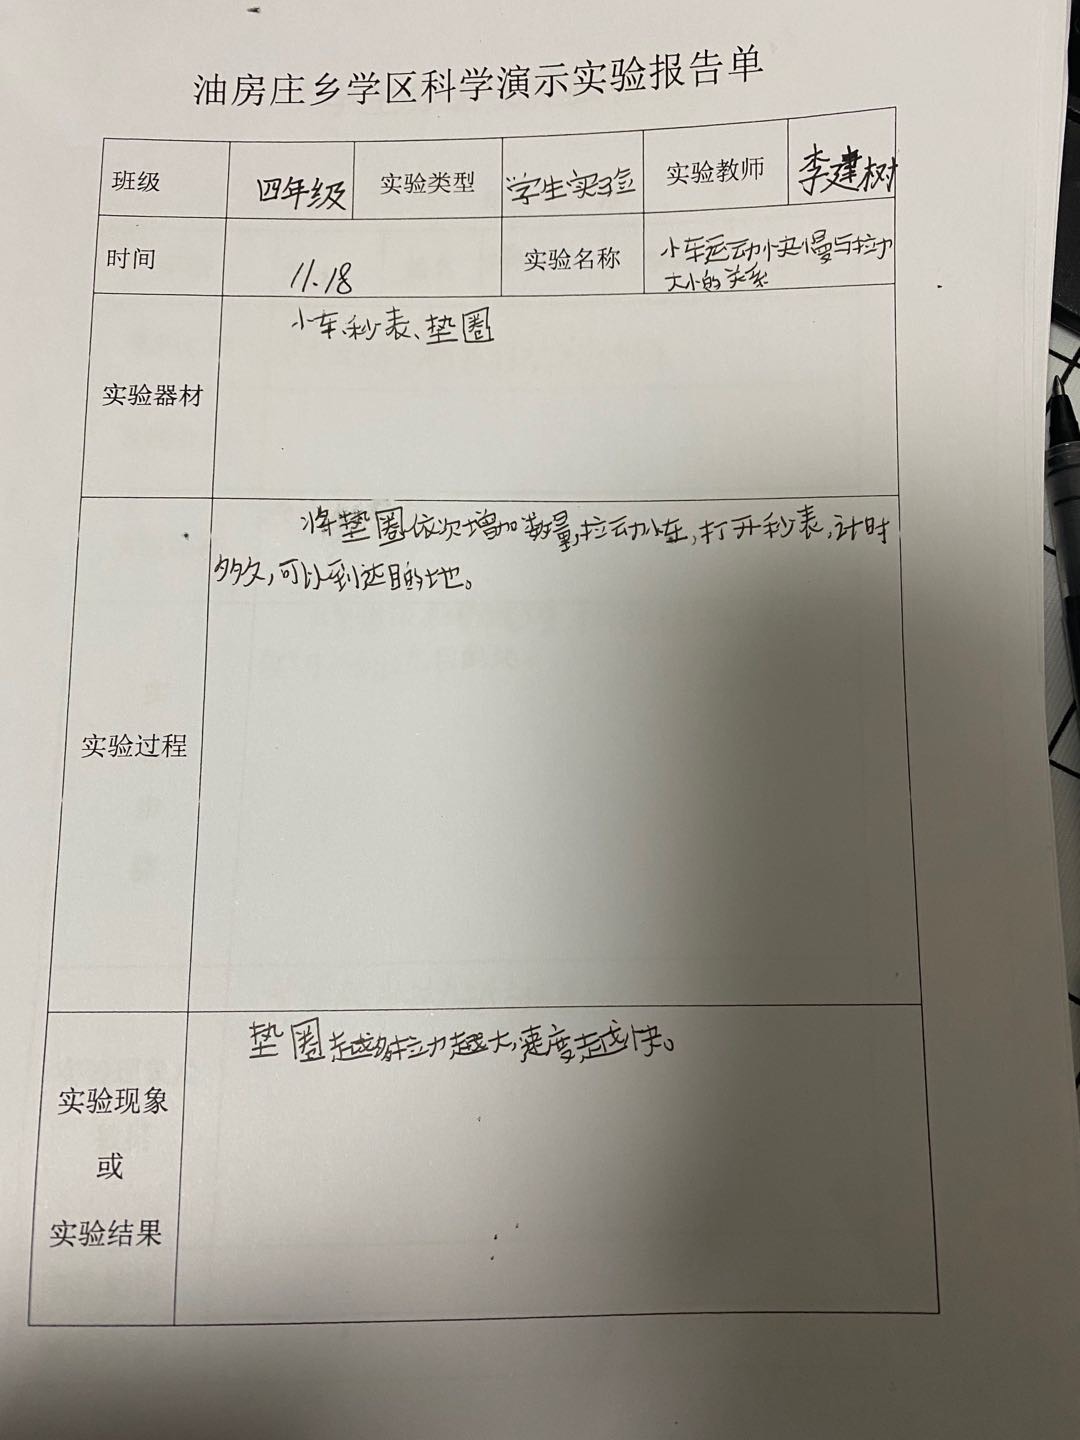 油房庄乡学区科学演示实验报告单
班级 四年级 实验类型 学生实验 实验教师 李建树
时间 11.18 实验名称 小车运动快慢与拉力
大小的关系
实验器材 小车、秒表、垫圈
实验过程 将垫圈依次增加数量,拉动小车,打开秒表,计时
多久,可以到达目的地。
实验现象
或
实验结果
垫圈越多拉力越大,速度越快。